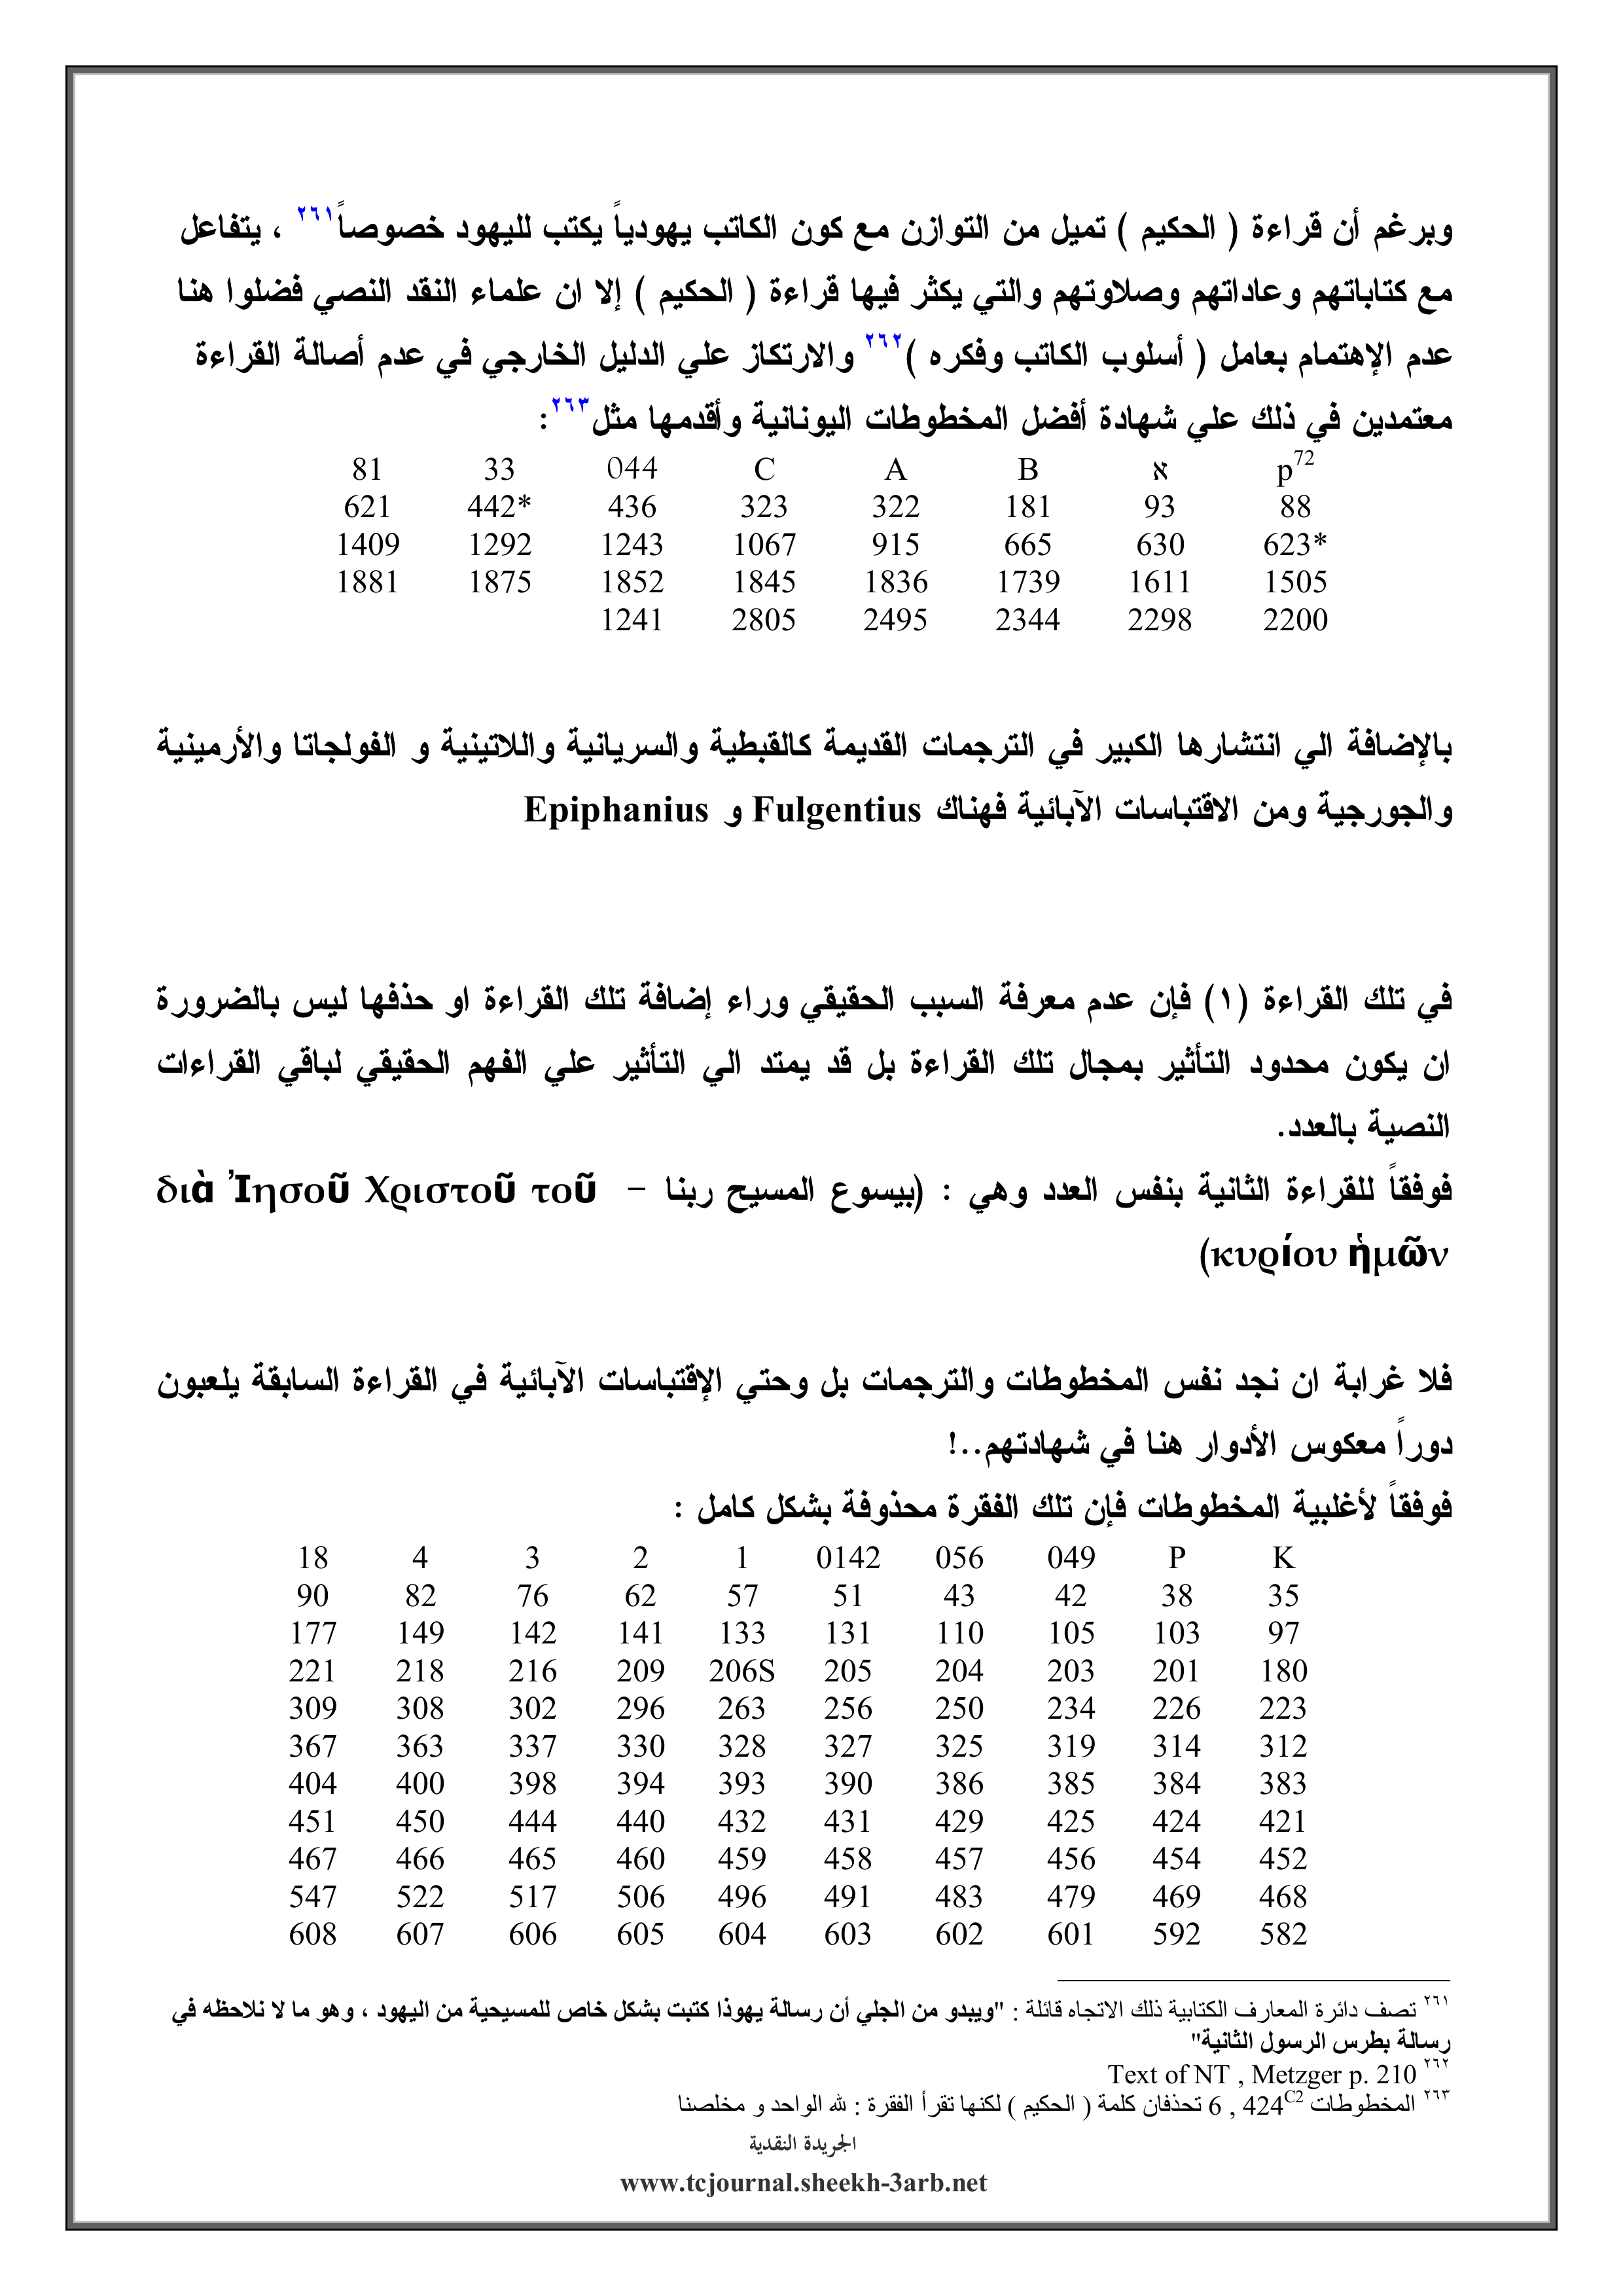 وبرغم أن قراءة ( الحكيم ) تميل من التوازن مع كون الكاتب يهودياً يكتب لليهود خصوصاً٢٦١ ، يتفاعل
مع كتاباتهم وعاداتهم وصلاوتهم والتي يكثر فيها قراءة ( الحكيم ) إلا ان علماء النقد النصي فضلوا هنا
عدم الإهتمام بعامل ( أسلوب الكاتب وفكره )٢٦٢ والارتكاز علي الدليل الخارجي في عدم أصالة القراءة
معتمدين في ذلك علي شهادة أفضل المخطوطات اليونانية وأقدمها مثل٢٦٣:
81 33 044 C A B א p72
621 442* 436 323 322 181 93 88
1409 1292 1243 1067 915 665 630 623*
1881 1875 1852 1845 1836 1739 1611 1505
1241 2805 2495 2344 2298 2200
بالإضافة الي انتشارها الكبير في الترجمات القديمة كالقبطية والسريانية واللاتينية و الفولجاتا والأرمينية
والجورجية ومن الاقتباسات الآبائية فهناك Fulgentius و Epiphanius
في تلك القراءة (١) فإن عدم معرفة السبب الحقيقي وراء إضافة تلك القراءة او حذفها ليس بالضرورة
ان يكون محدود التأثير بمجال تلك القراءة بل قد يمتد الي التأثير علي الفهم الحقيقي لباقي القراءات
النصية بالعدد.
فوفقاً للقراءة الثانية بنفس العدد وهي : (بيسوع المسيح ربنا – διὰ Ἰησοῦ Χριστοῦ τοῦ
κυρίου ἡμῶν)
فلا غرابة ان نجد نفس المخطوطات والترجمات بل وحتي الإقتباسات الآبائية في القراءة السابقة يلعبون
دوراً معكوس الأدوار هنا في شهادتهم..!
فوفقاً لأغلبية المخطوطات فإن تلك الفقرة محذوفة بشكل كامل :
18 4 3 2 1 0142 056 049 P K
90 82 76 62 57 51 43 42 38 35
177 149 142 141 133 131 110 105 103 97
221 218 216 209 206S 205 204 203 201 180
309 308 302 296 263 256 250 234 226 223
367 363 337 330 328 327 325 319 314 312
404 400 398 394 393 390 386 385 384 383
451 450 444 440 432 431 429 425 424 421
467 466 465 460 459 458 457 456 454 452
547 522 517 506 496 491 483 479 469 468
608 607 606 605 604 603 602 601 592 582
٢٦١ تصف دائرة المعارف الكتابية ذلك الاتجاه قائلة : "ويبدو من الجلي أن رسالة يهوذا كتبت بشكل خاص للمسيحية من اليهود ، وهو ما لا نلاحظه في
رسالة بطرس الرسول الثانية"
٢٦٢ Text of NT , Metzger p. 210
٢٦٣ المخطوطات 6 , 424C2 تحذفان كلمة ( الحكيم ) لكنها تقرأ الفقرة : لله الواحد و مخلصنا
الجريدة النقدية
www.tcjournal.sheekh-3arb.net